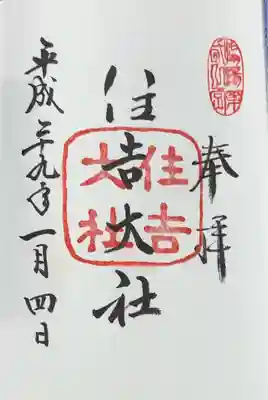 奉拝
住吉大社
住吉大社
平成二九年一月四日